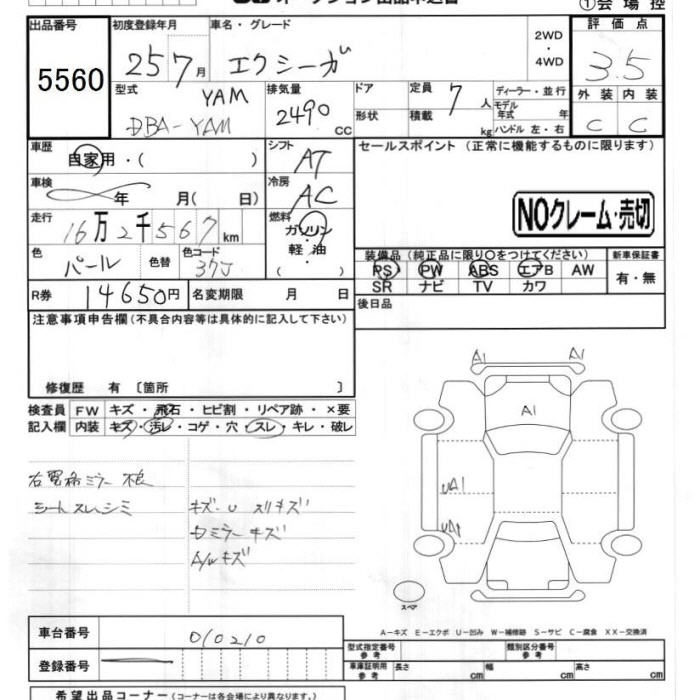 ①会場控
出品番号
5560
初度登録年月
25 7月
車名・グレード
エクシーガ
2WD
・
4WD
評価点
3.5
型式
YAM
DBA-YAM
排気量
2490
CC
ドア
形状
定員
7人
積載
kg
ディーラー・並行
モデル
年式 年
ハンドル 左・右
外装 内装
C C
車歴
自家用・( )
シフト
AT
セールスポイント (正常に機能するものに限ります)
車検
年 月( 日)
冷房
AC
NOクレーム・売切
走行
16万2千567km
燃料
ガソリン
・
軽・油
( )
色
パール
色替
色コード
37J
装備品(純正品に限り○をつけてください)
新車保証書
PS PW ABS エアB AW
SR ナビ TV カワ
有・無
R券
14650円
名変期限 月 日
後日品
注意事項申告欄(不具合内容等は具体的に記入して下さい)
修復歴 有 〔箇所 〕
検査員
記入欄
FW キズ・飛石・ヒビ割・リペア跡・×要
内装 キズ・汚レ・コゲ・穴・スレ・キレ・破レ
A1 A1
A1
UA1
UA1
右電格ミラー不良
シートスレ、シミ
キズ・U スリキズ
ミラーキズ
A/Wキズ
スペア
A-キズ E-エクボ U-凹み W-補修跡 S-サビ C-腐食 XX-交換済
車台番号
010210
型式指定番号
参考
類別区分番号
参考
登録番号
車庫証明用
参考
長さ cm 幅 cm 高さ cm
希望出品コーナー(コーナーは各会場により異なります。)